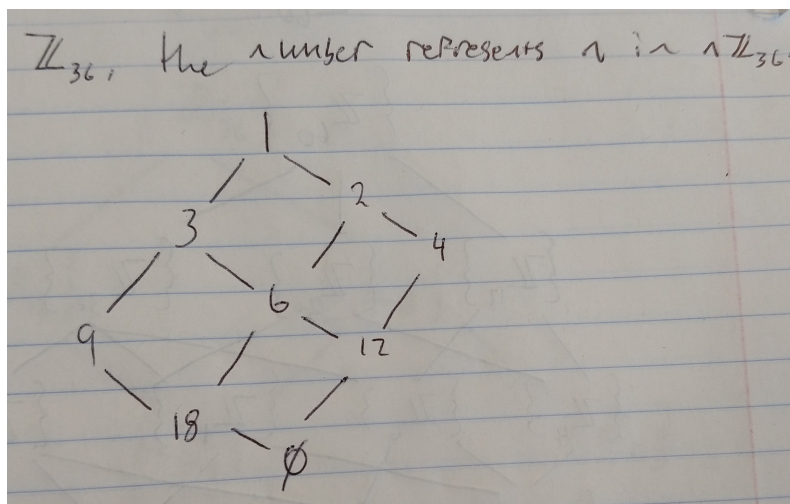 ℤ₃₆, the number represents n in nℤ₃₆.
1
2
3
4
6
9
12
18
0